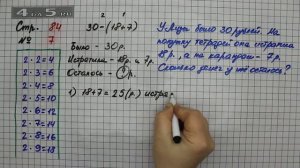 Стр. 84
№ 7
2·2=4
2·3=6
2·4=8
2·5=10
2·6=12
2·7=14
2·8=16
2·9=18
2 1
30-(18+7)
Было - 30 р.
Истратила - 18 р. и 7 р.
Осталось - ? р.
1) 18+7=25(р.) истра
У Иды было 30 рублей. На
покупку тетрадей она истратила
18 р., а на карандаши - 7 р.
Сколько денег у неё осталось?